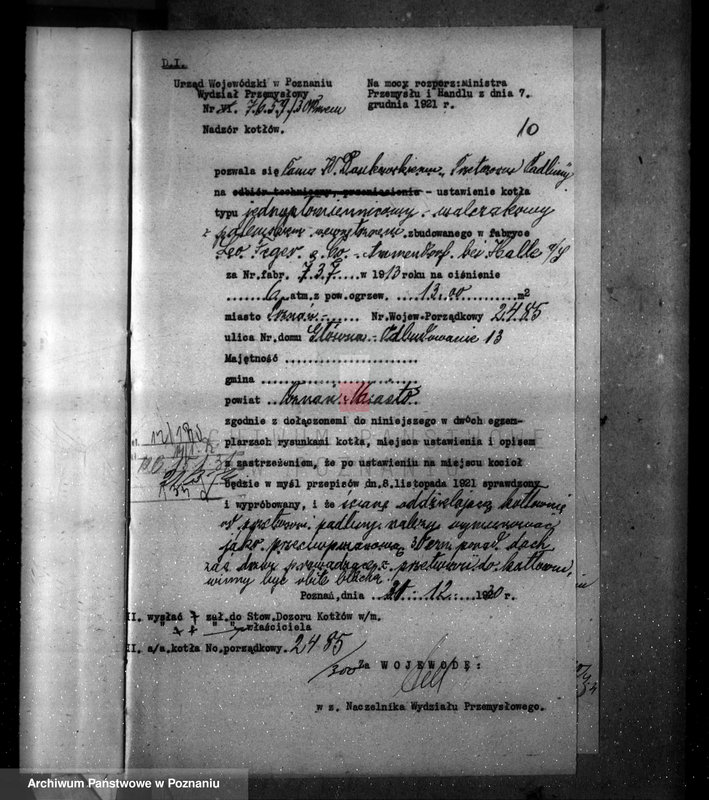 D.I.
Urząd Wojewódzki w Poznaniu
Wydział Przemysłowy
Nr. 7659/30
Nadzór kotłów.
Na mocy rozporz:Ministra
Przemysłu i Handlu z dnia 7.
grudnia 1921 r.
10
pozwala się Panu W.
na odbiór techniczny, przeniesienie - ustawienie kotła
typu jednopłomiennicowy - walczakowy
zbudowanego w fabryce
Co. - Ammendorf bei Halle a/S
za Nr.fabr. 737 w 1913 roku na ciśnienie
6 atm.z pow.ogrzew. 13.00 m2
miasto Poznań Nr.Wojew.Porządkowy 2485
ulica Nr.domu Główna - Odbudowanie 13
Majętność
gmina
powiat Poznań - Miasto
zgodnie z dołączonemi do niniejszego w dwóch egzem-
plarzach rysunkami kotła, miejsca ustawienia i opisem
z zastrzeżeniem, że po ustawieniu na miejscu kocioł
będzie w myśl przepisów dn.8.listopada 1921 sprawdzony
i wypróbowany, i że ścianę oddzielającą kotłownię
od przetworni padliny należy wymurować
jako przeciwpożarową 30 cm. ponad dach
zaś drzwi prowadzące z przetworni do kotłowni,
winny być obite blachą.
Poznań,dnia 20 12 1930 r.
II. wysłać zał.do Stow.Dozoru Kotłów w/m.
właściciela
II. a/a.kotła No.porządkowy. 2485
Za WOJEWODĘ:
w z. Naczelnika Wydziału Przemysłowego.
Archiwum Państwowe w Poznaniu